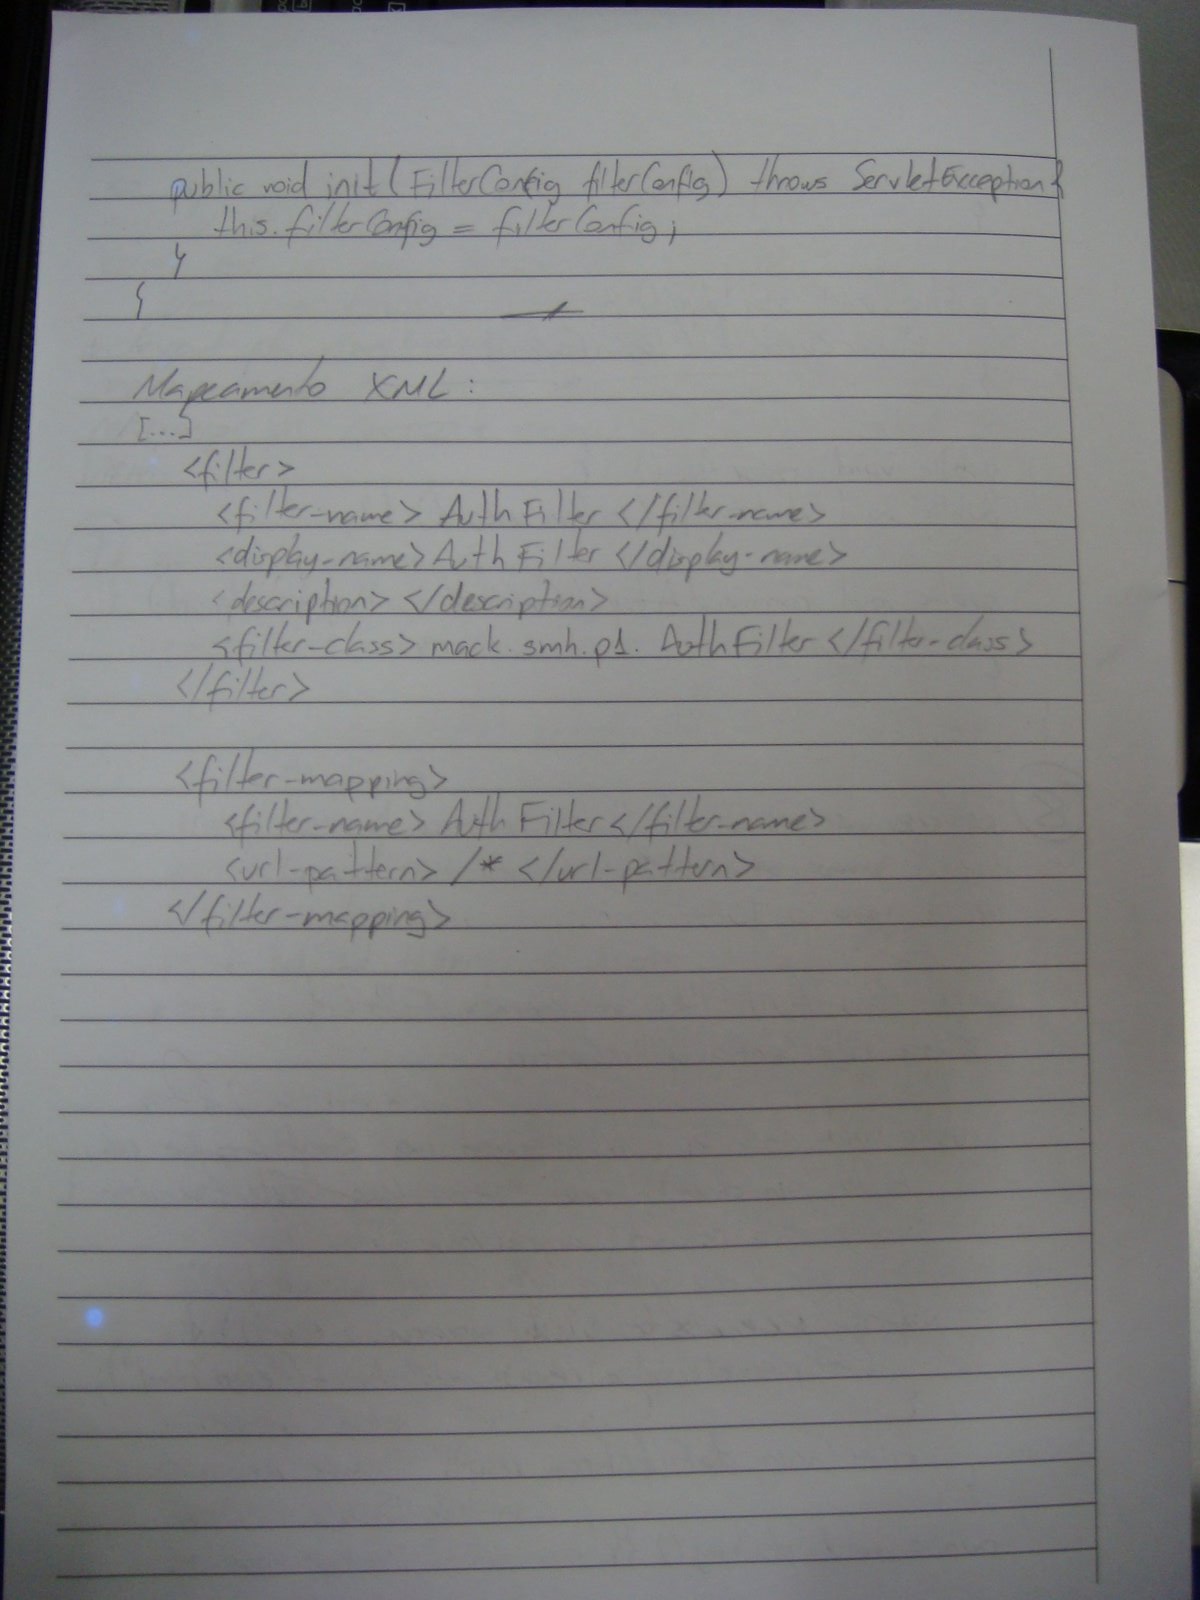 public void init(FilterConfig filterConfig) throws ServletException{
this.filterConfig = filterConfig;
}
{
Mapeamento XML:
[...]
<filter>
<filter-name> AuthFilter </filter-name>
<display-name> AuthFilter </display-name>
<description> </description>
<filter-class> mack.smh.p1.AuthFilter </filter-class>
</filter>
<filter-mapping>
<filter-name> AuthFilter </filter-name>
<url-pattern> /* </url-pattern>
</filter-mapping>